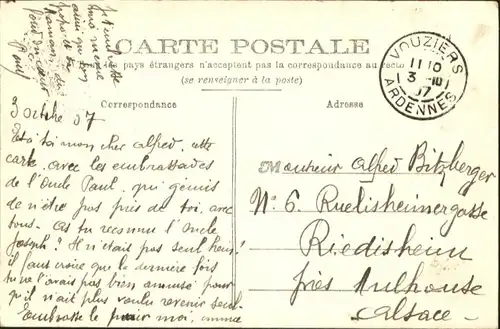 Je t'embrasse
ainsi que ton
papa et ta
maman
Paul
CARTE POSTALE
pays étrangers n'acceptent pas la correspondance au recto
(se renseigner à la poste)
VOUZIERS
11 10
3 -10
07
ARDENNES
Correspondance
Adresse
3 octobre 07
Et à toi mon cher Alfred, cette
carte, avec les embrassades
de l'Oncle Paul, qui gémis
de n'être pas près de toi, avec
tous. As tu reconnu l'Oncle
Joseph? Il n'était pas seul hein!
il faut croire que la dernière fois
tu ne l'avais pas bien amusé pour
qu'il n'ait plus voulu revenir seul.
Embrasse le pour moi, comme
Monsieur Alfred Bitzberger
N° 6. Ruelisheimergasse
Riedisheim
près Mulhouse
Alsace